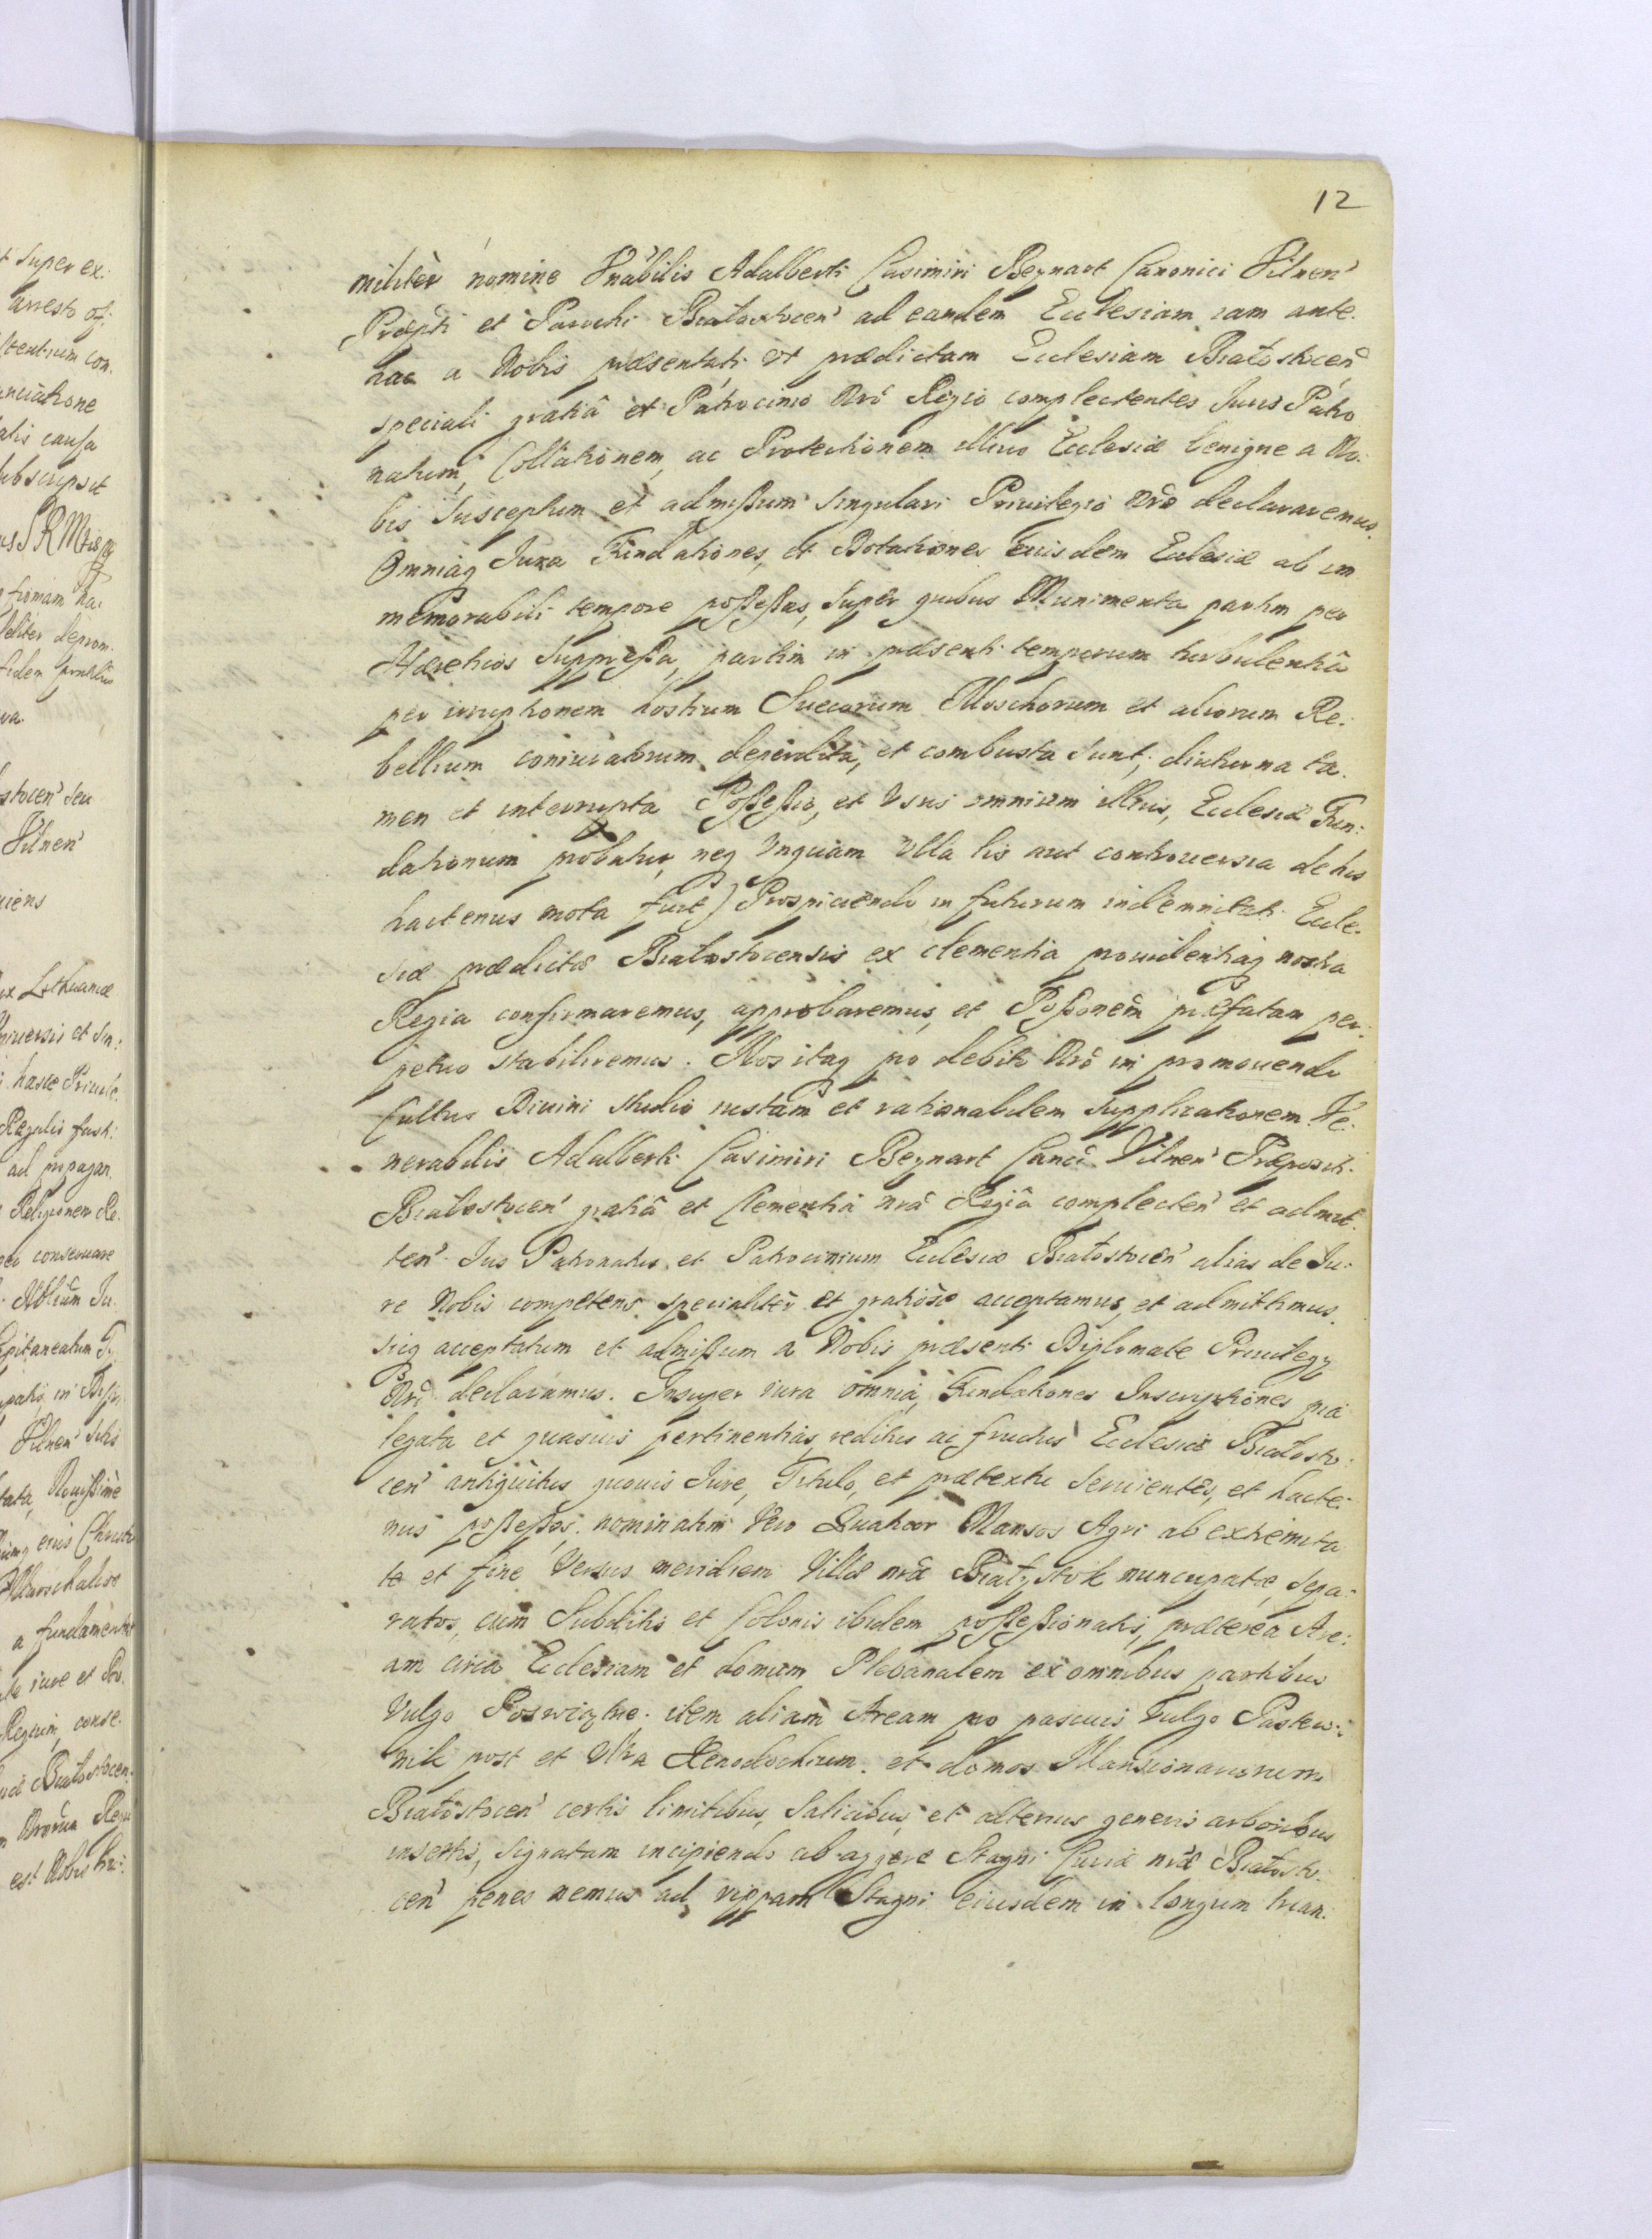 12
militèr nomine Vnãbilis Adalberti Casimiri Beynart Canonici Vilnen̉
Præpti et Parochi Białostocen̉ ad eandem Ecclesiam iam ante.
hac a Nobis præsentati vt prædictam Ecclesiam Białostocen̉
speciali gratiâ et Patrocinio Nrõ Regio complectentes Juris Patro
natum, Collationem, ac Protectionem illius Ecclesiæ benigne a No:
bis susceptum et admißum singulari Priuilegio Nrõ declararemus.
Omniaq Jura Fundationes, et Dotationes eiusdem Ecclesiæ ab im
memorabili tempore poßeßas, super quibus Munimenta partim per
Hæreticos suppreßa, partim in præsenti temporum turbulentiâ
per irruptionem hostium Suecorum Moschorum et aliorum Re:
bellium coniuratorum deperdita, et combusta sunt, diuturna ta.
men et interrupta Poßeßio, et Vsus omnium illius, Ecclesiæ Fun:
dationum probatur, neq Vnquam Vlla lis aut controuersia de his
hactenus mota fuit) Prospiciendo in futurum indemnitati Eccle.
siæ prædictæ Białostocensis ex clementia prouidentiaq nostra
Regia confirmaremus, approbaremus, et Poßonẽm præfatam per:
petuo stabiliremus. Nos itaq pro debito Nrõ in promouendo
Cultus Diuini studio iustam et rationabilem supplicationem Ve:
nerabilis Adalberti Casimiri Beynart Canci Vilnen̉ Præposit.
Białostocen̉ gratiâ et Clementiâ nrâ Regiâ complecten̉ et admit.
ten̉ Jus Patronatus et Patrocinium Ecclesiæ Białostocen̉ alias de Ju:
re Nobis competens specialitèr et gratiosè acceptamus, et admittimus.
sicq acceptatum et admißum a Nobis præsenti Diplomate Priuilegy
Nri declaramus. Insuper iura omnia, Fundationes Inscriptiones pia
legata et quasuis pertinentias, reditus ac fructus Ecclesiæ Białosto:
cen̉ antiquitus quouis Jure, Titulo, et prætextu seruientes, et hacte:
nus poßeßos. nominatim Vero Quatuor Mansos Agri ab extremita
te et fine Versus meridiem Villæ nrã Białystok nuncupatæ, sepa:
ratos, cum Subditis et Colonis ibidem poßeßionatis, præterea Are:
am circa Ecclesiam et domum Plebanalem ex omnibus partibus
Vulgo Poswiętne. item aliam Aream pro pascuis Vulgo Pastew:
nik post et Vltra Xenodochium. et domos Mansionariorum
Białostocen̉ certis limitibus, Salicibus, et alterius generis arboribus
insertis, signatam incipiendo ab aggere Stagni Curiæ nrã Białosto:
cen̉ penes nemus ad rippam Stagni eiusdem in longum trian: